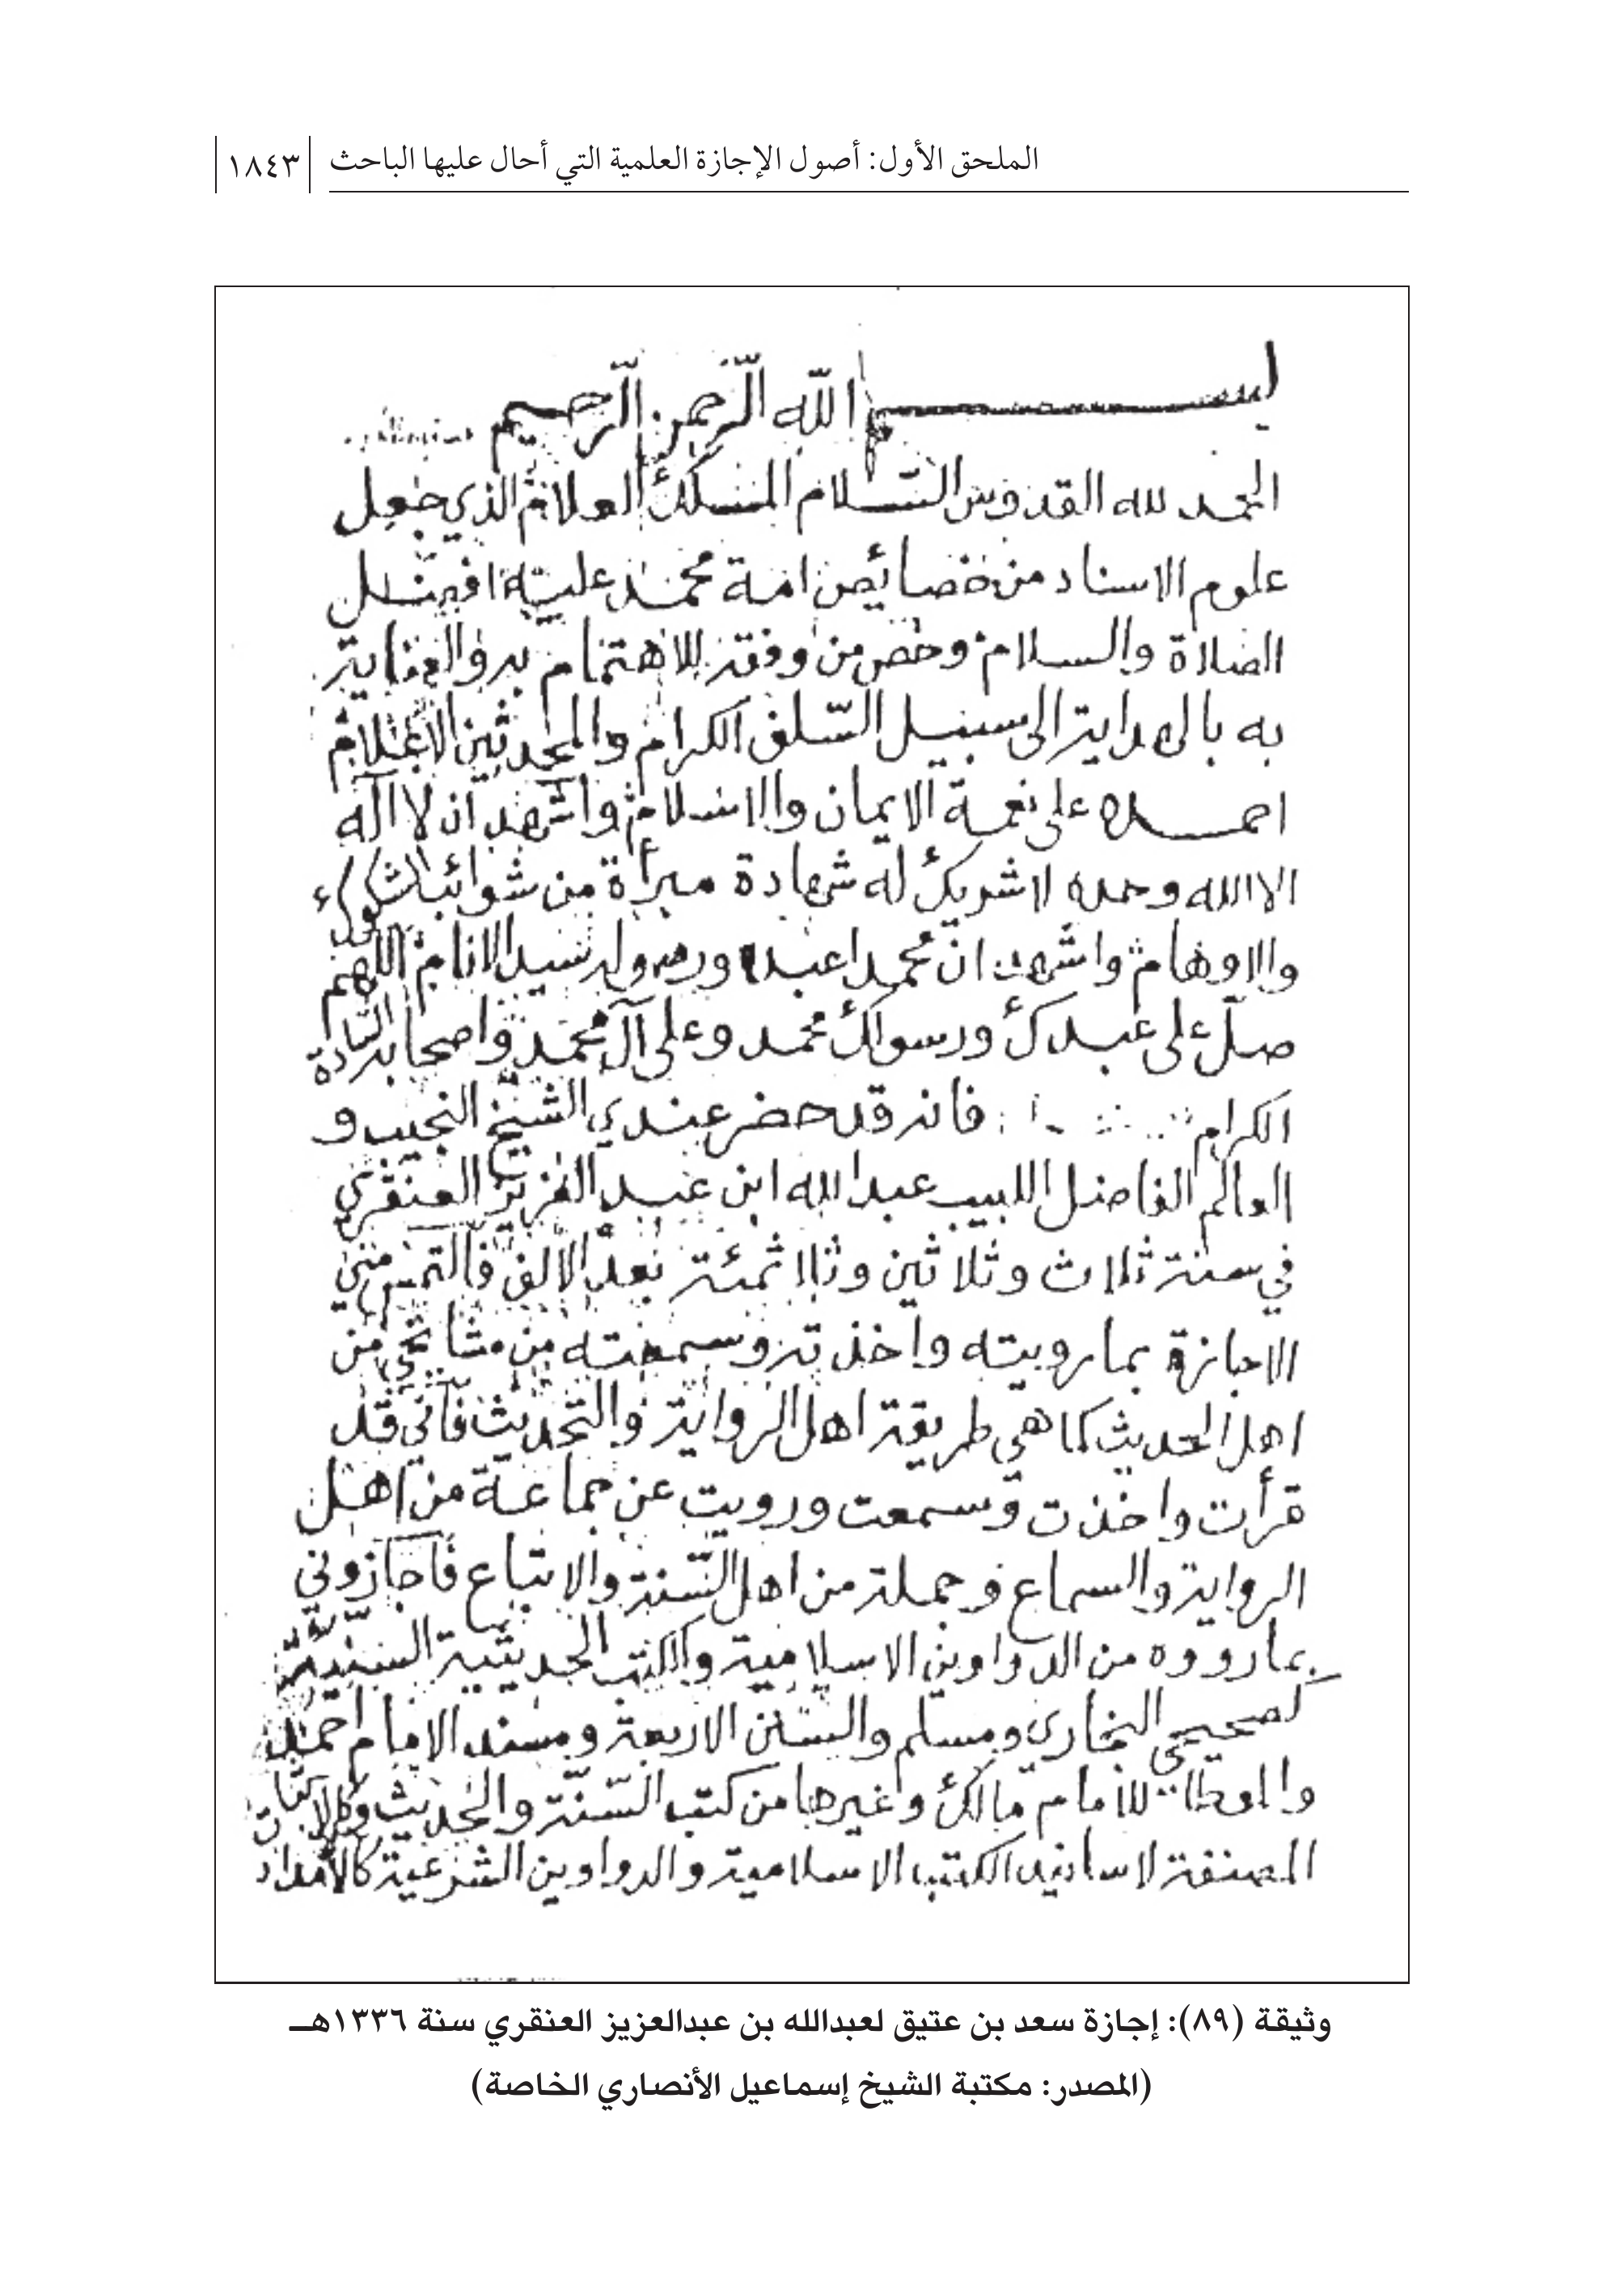 الملحق الأول: أصول الإجازة العلمية التي أحال عليها الباحث
١٨٤٣
بسم الله الرحمن الرحيم
الحمد لله القدوس السلام الملك العلام الذي جعل
علوم الاسناد من خصائص امة محمد عليه افضل
الصلاة والسلام وخص من وفقه للاهتمام به والعناية
به بالهداية الى سبيل السلف الكرام والمحدثين الاعلام
احمده على نعمة الايمان والاسلام واشهد ان لا اله
الا الله وحده لا شريك له شهادة مبرأة من شوائب الشكوك
والاوهام واشهد ان محمدا عبده ورسوله سيد الانام اللهم
صل على عبدك ورسولك محمد وعلى آل محمد واصحابه السادة
الكرام فانه قد حضر عندي الشيخ النجيب و
العالم الفاضل اللبيب عبد الله ابن عبد العزيز العنقري
في سنة ثلاث وثلاثين وثلاثمئة بعد الالف فالتمس مني
الاجازة بما رويته واخذته وسمعته من مشائخي من
اهل الحديث كما هي طريقة اهل الرواية والتحديث فاني قد
قرأت واخذت وسمعت ورويت عن جماعة من اهل
الرواية والسماع وجملة من اهل السنة والاتباع فاجازوني
بما رووه من الدواوين الاسلامية والكتب الحديثية السنية
كصحيحي البخاري ومسلم والسنن الاربعة ومسند الامام احمد
والموطا للامام مالك وغيرها من كتب السنة والحديث وكالاثبات
المصنفة لاسانيد الكتب الاسلامية والدواوين الشرعية كالامداد
وثيقة (٨٩): إجازة سعد بن عتيق لعبدالله بن عبدالعزيز العنقري سنة ١٣٣٦هـ
(المصدر: مكتبة الشيخ إسماعيل الأنصاري الخاصة)